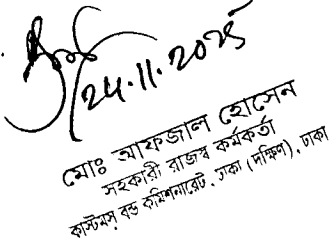 24.11.2025
মোঃ আফজাল হোসেন
সহকারী রাজস্ব কর্মকর্তা
কাস্টমস্ বন্ড কমিশনারেট, ঢাকা (দক্ষিণ), ঢাকা